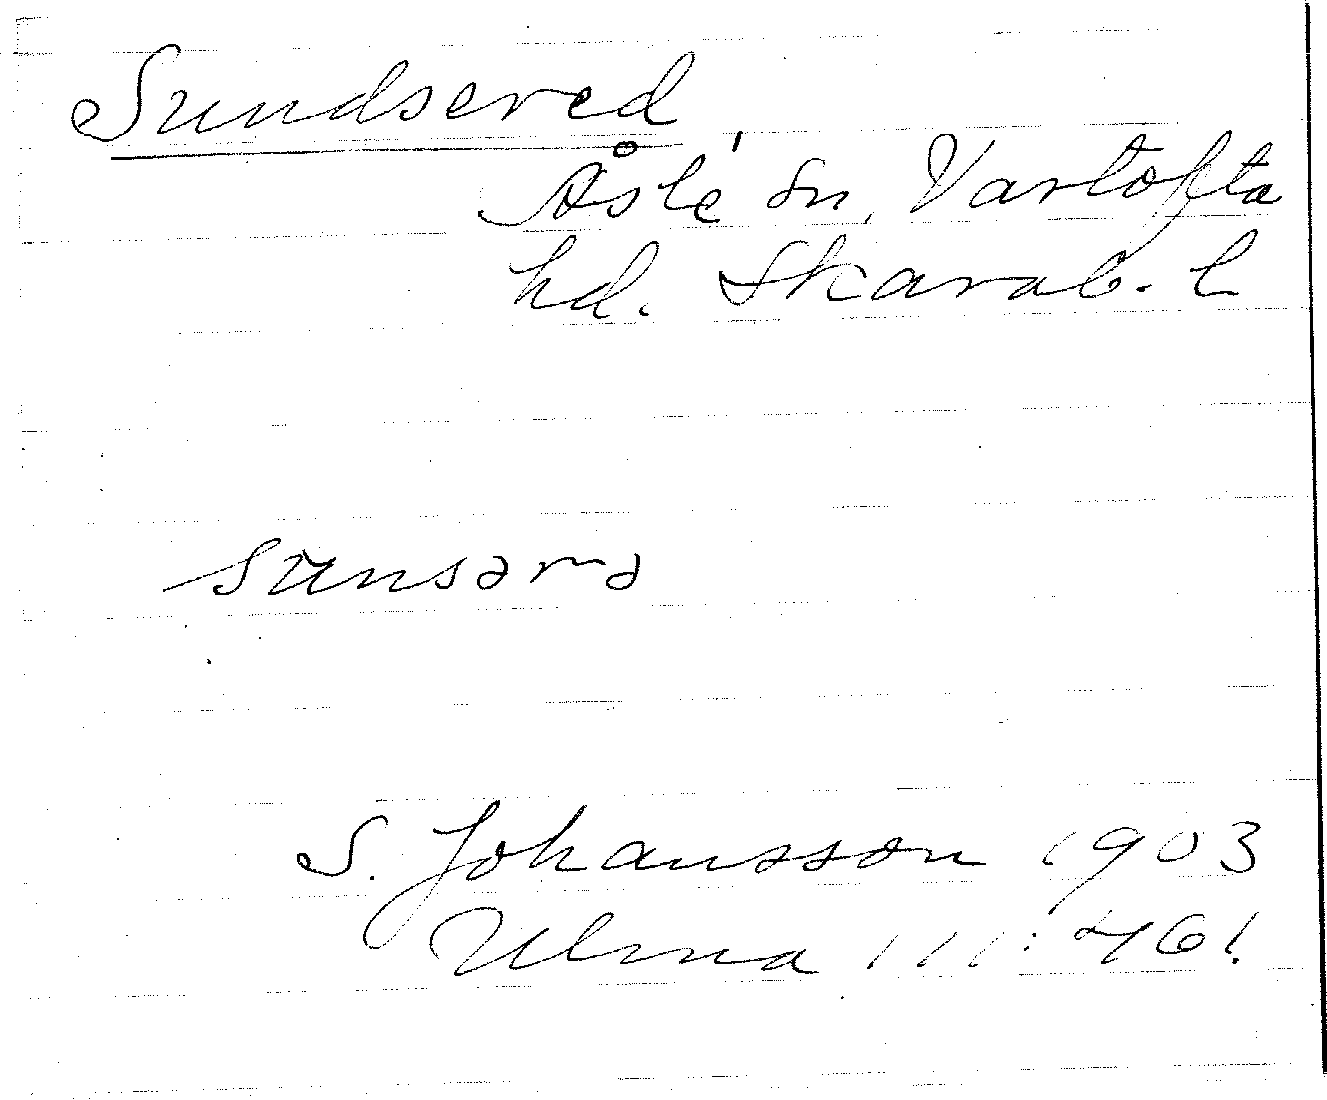 Sundsered
Åsle sn, Vartofta
hd. Skarab. l
sunsərə
S. Johansson 1903
Ulma 111:461.